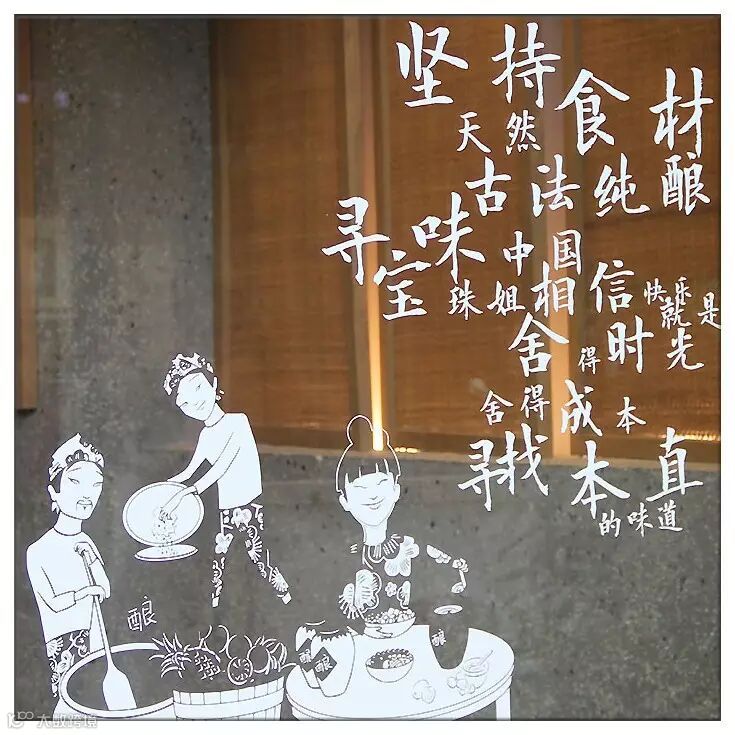 坚持食材
天然
古法纯酿
寻味中国
宝珠姐相信快乐就是
舍得时光
舍得成本
寻找本真
的味道
酿
酿
酿
酿
大数跨境